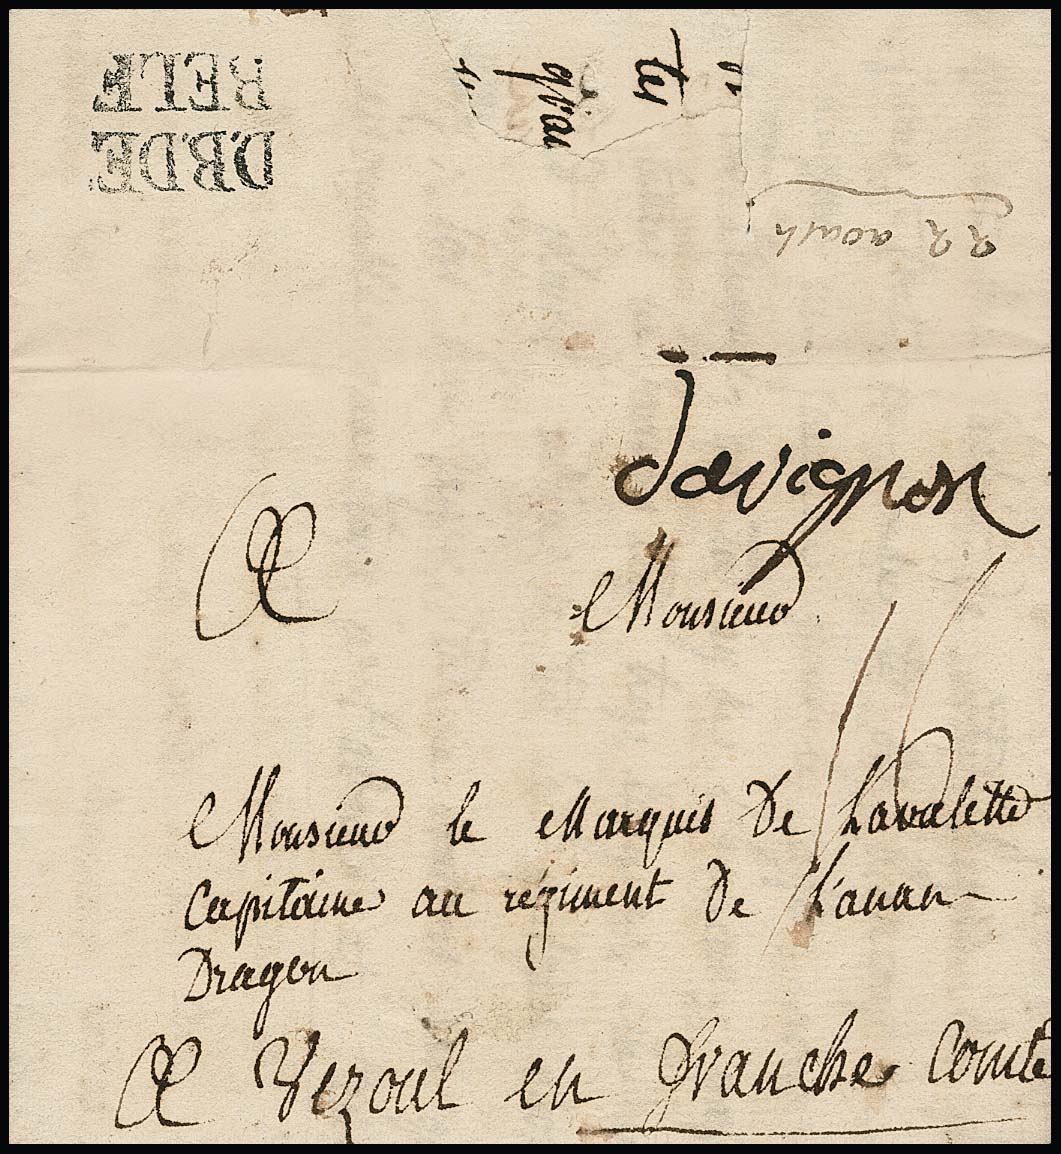 D.B.DE
BELF
22 aoust
davignon
A Monsieur
Monsieur le Marquis De Lavalette
Capitaine au régiment De
Dragon
A Vezoul en franche Comté